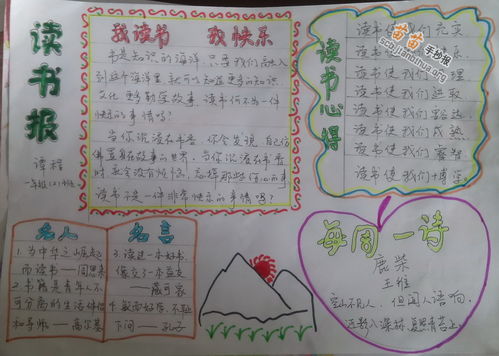 读书报
我读书 我快乐
书是知识的海洋,只要我们融入
到这个海洋里,就可以知道更多的知识,
文化,
读书何不为一件
快乐的事情吗?
当你沉浸在书香,你会发现,自己仿
佛置身在故事的世界,当你沉浸在书香
时,就会没有忧伤,
读书不是一件非常快乐的事情吗?
读书心得
读书使我们充实
读书使我们
读书使我们
读书使我们进取
读书使我们豁达
读书使我们成熟
读书使我们睿智
读书使我们博学
苗苗手抄报
scb.jianchihua.org
名人
名言
1.为中华之崛起
而读书——周恩来
2.书籍是青年人不
可分离的生活伴侣
和导师——高尔基
3.读进一本好书,
像交了一个益友
——臧克家
敏而好学,不耻
下问——孔子
每周一诗
鹿柴
王维
空山不见人,但闻人语响,
返影入深林,复照青苔上。